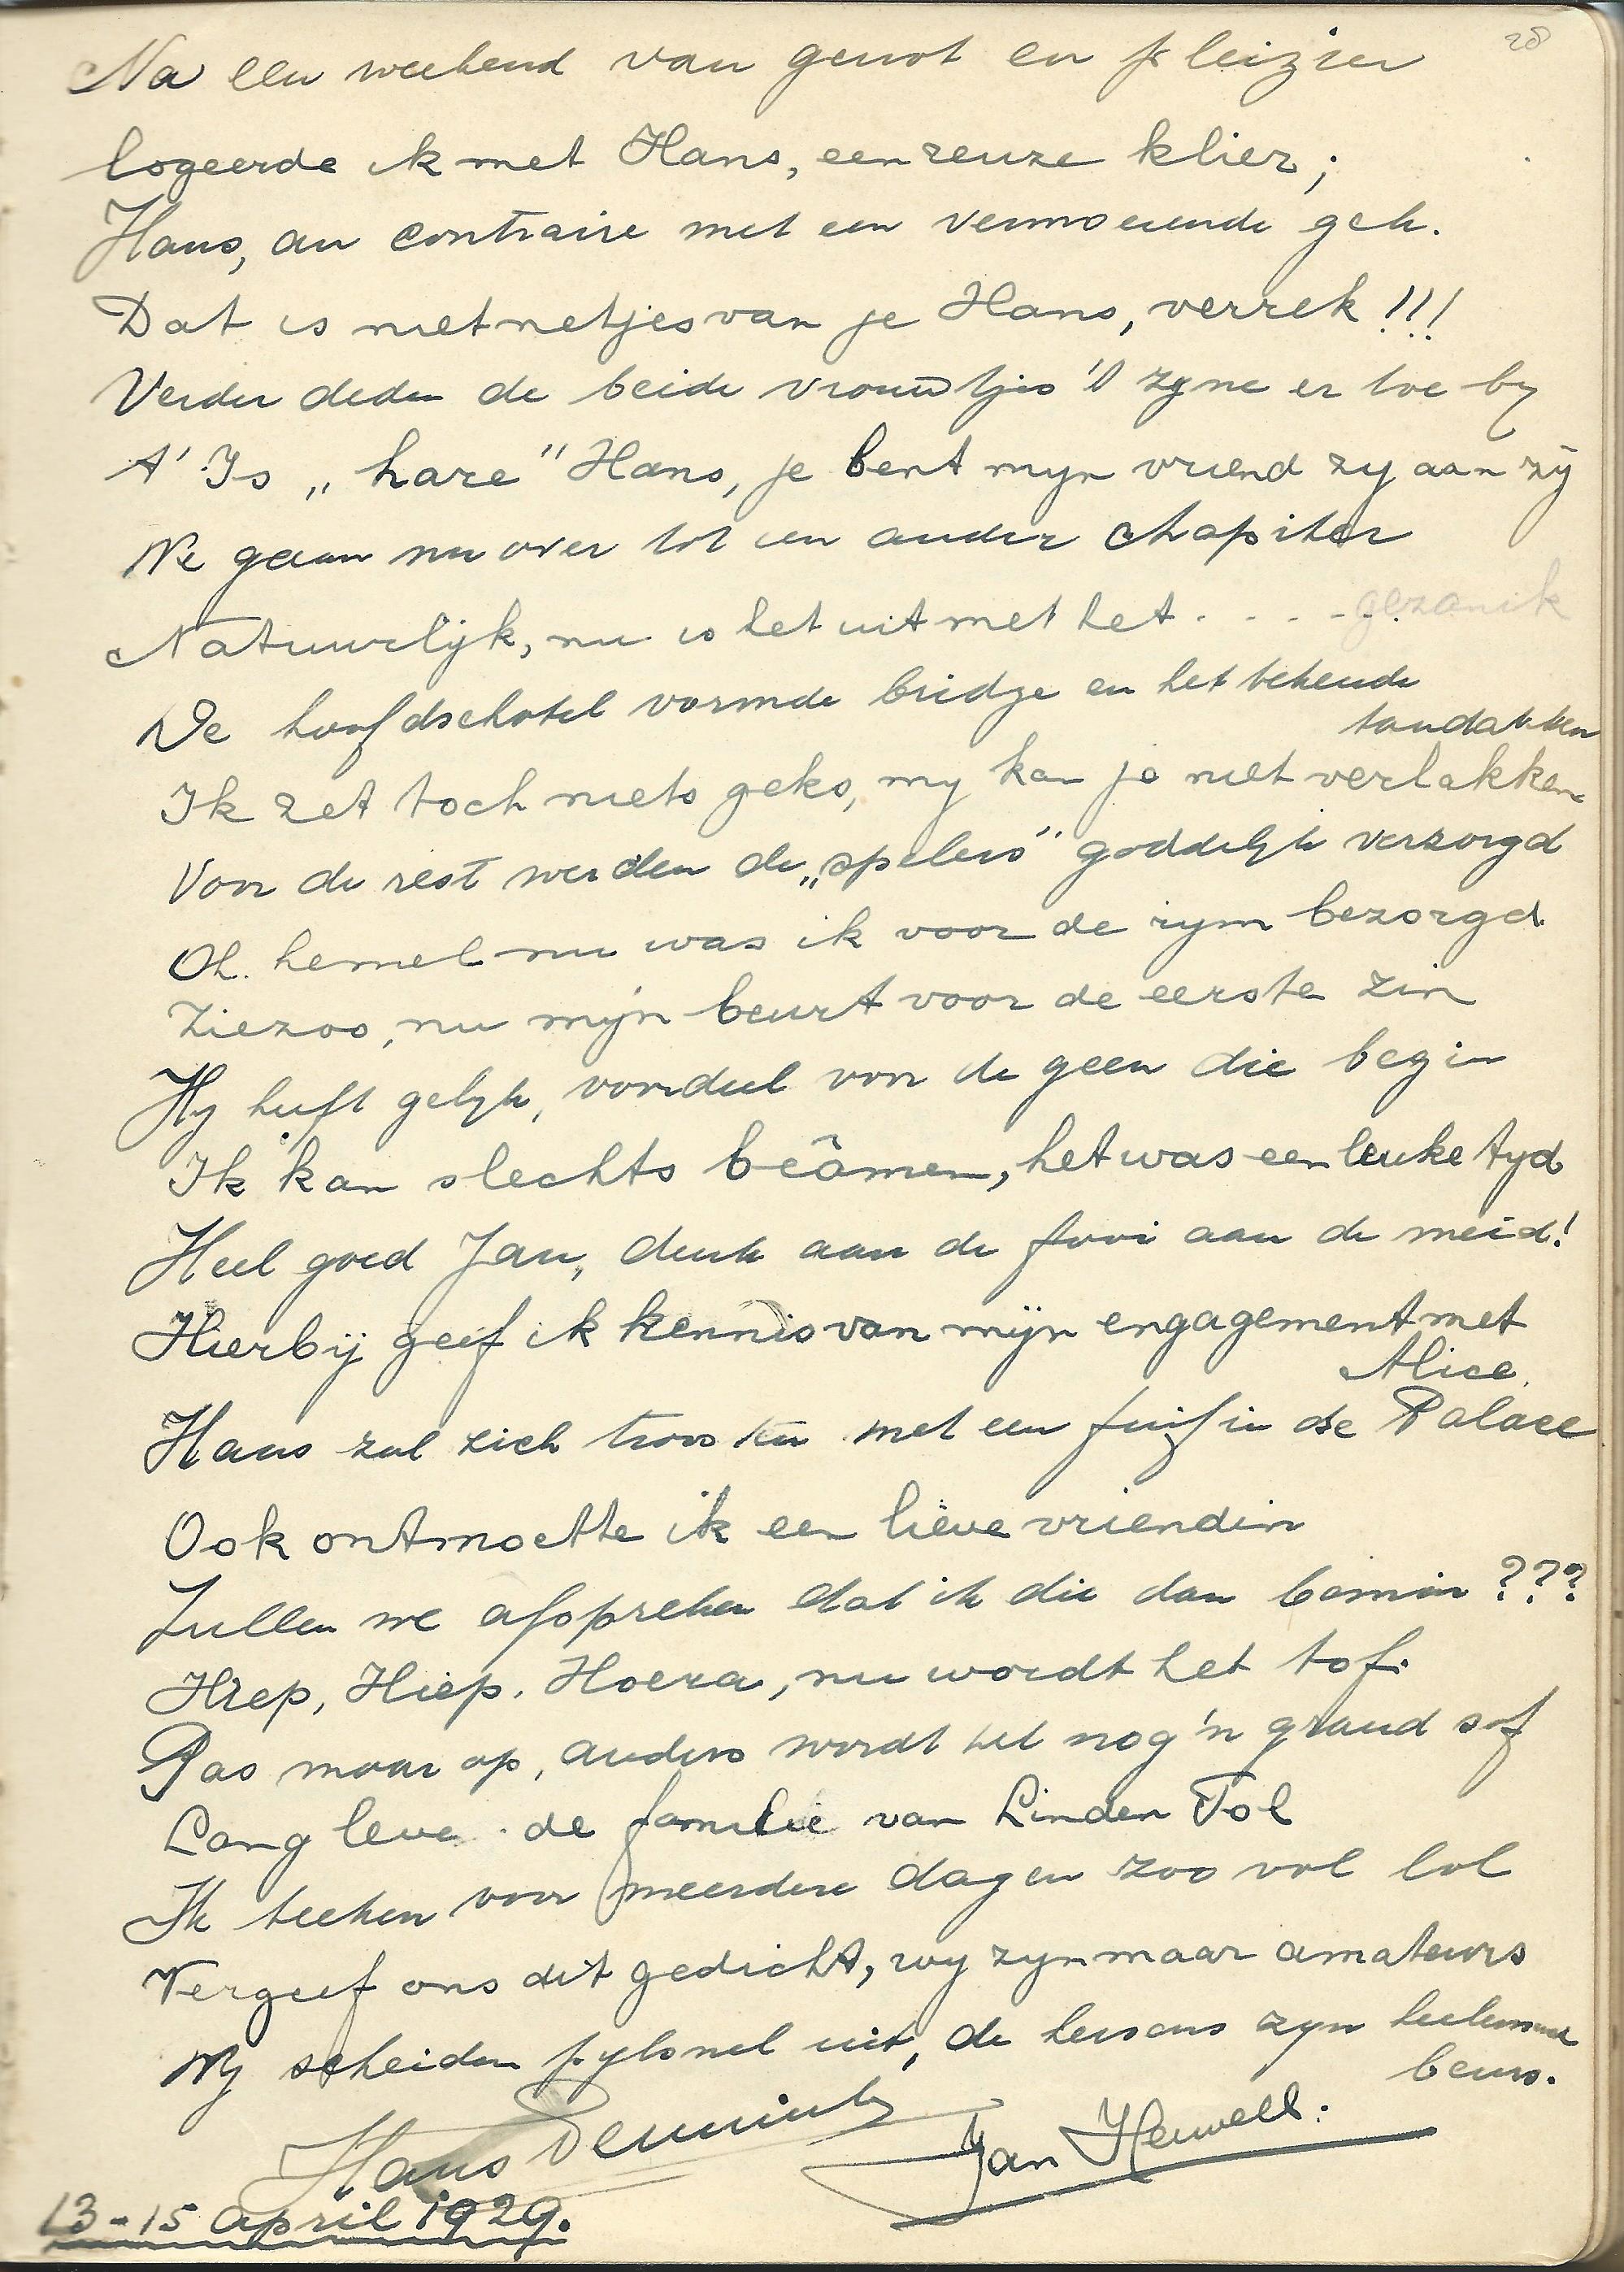 28
Na een weekend van genot en pleizier
logeerde ik met Hans, een reuze klier;
Hans, au contraire met een vermoeiende gek.
Dat is niet netjes van je Hans, verrek!!!
Verder deden de beide vrouwtjes 't zijne er toe by
t' Is „hare" Hans, je bent mijn vriend zy aan zij
We gaan nu over tot een ander chapiter
Natuurlijk, nu is het uit met het . . . . gezanik
De hoofdschotel vormde bridge en het bekende
tandakken
Ik zet toch niets geks, my kan je niet verlakken
Voor de rest werden de „spelers" goddelyk verzorgd
Oh. hemel nu was ik voor de rym bezorgd
Ziezoo, nu mijn beurt voor de eerste zin
Hy heeft gelyk, voordeel voor de geen die begin
Ik kan slechts beâmen, het was een leuke tyd
Heel goed Jan, denk aan de fooi aan de meid!
Hierbij geef ik kennis van mijn engagement met
Alice.
Hans zal zich troosten met een fuif in de Palace
Ook ontmoette ik een lieve vriendin
Zullen we afspreken dat ik die dan bemin ???
Hiep, Hiep, Hoera, nu wordt het tof.
Pas maar op, anders wordt het nog 'n grand sof
Lang leve de familie van Linden Tol
Ik teeken voor meerdere dagen zoo vol lol
Vergeef ons dit gedicht, wy zyn maar amateurs
Wy scheiden pylsnel uit, de hersens zyn heelemaal
beurs.
Hans Jan
13-15 april 1929.